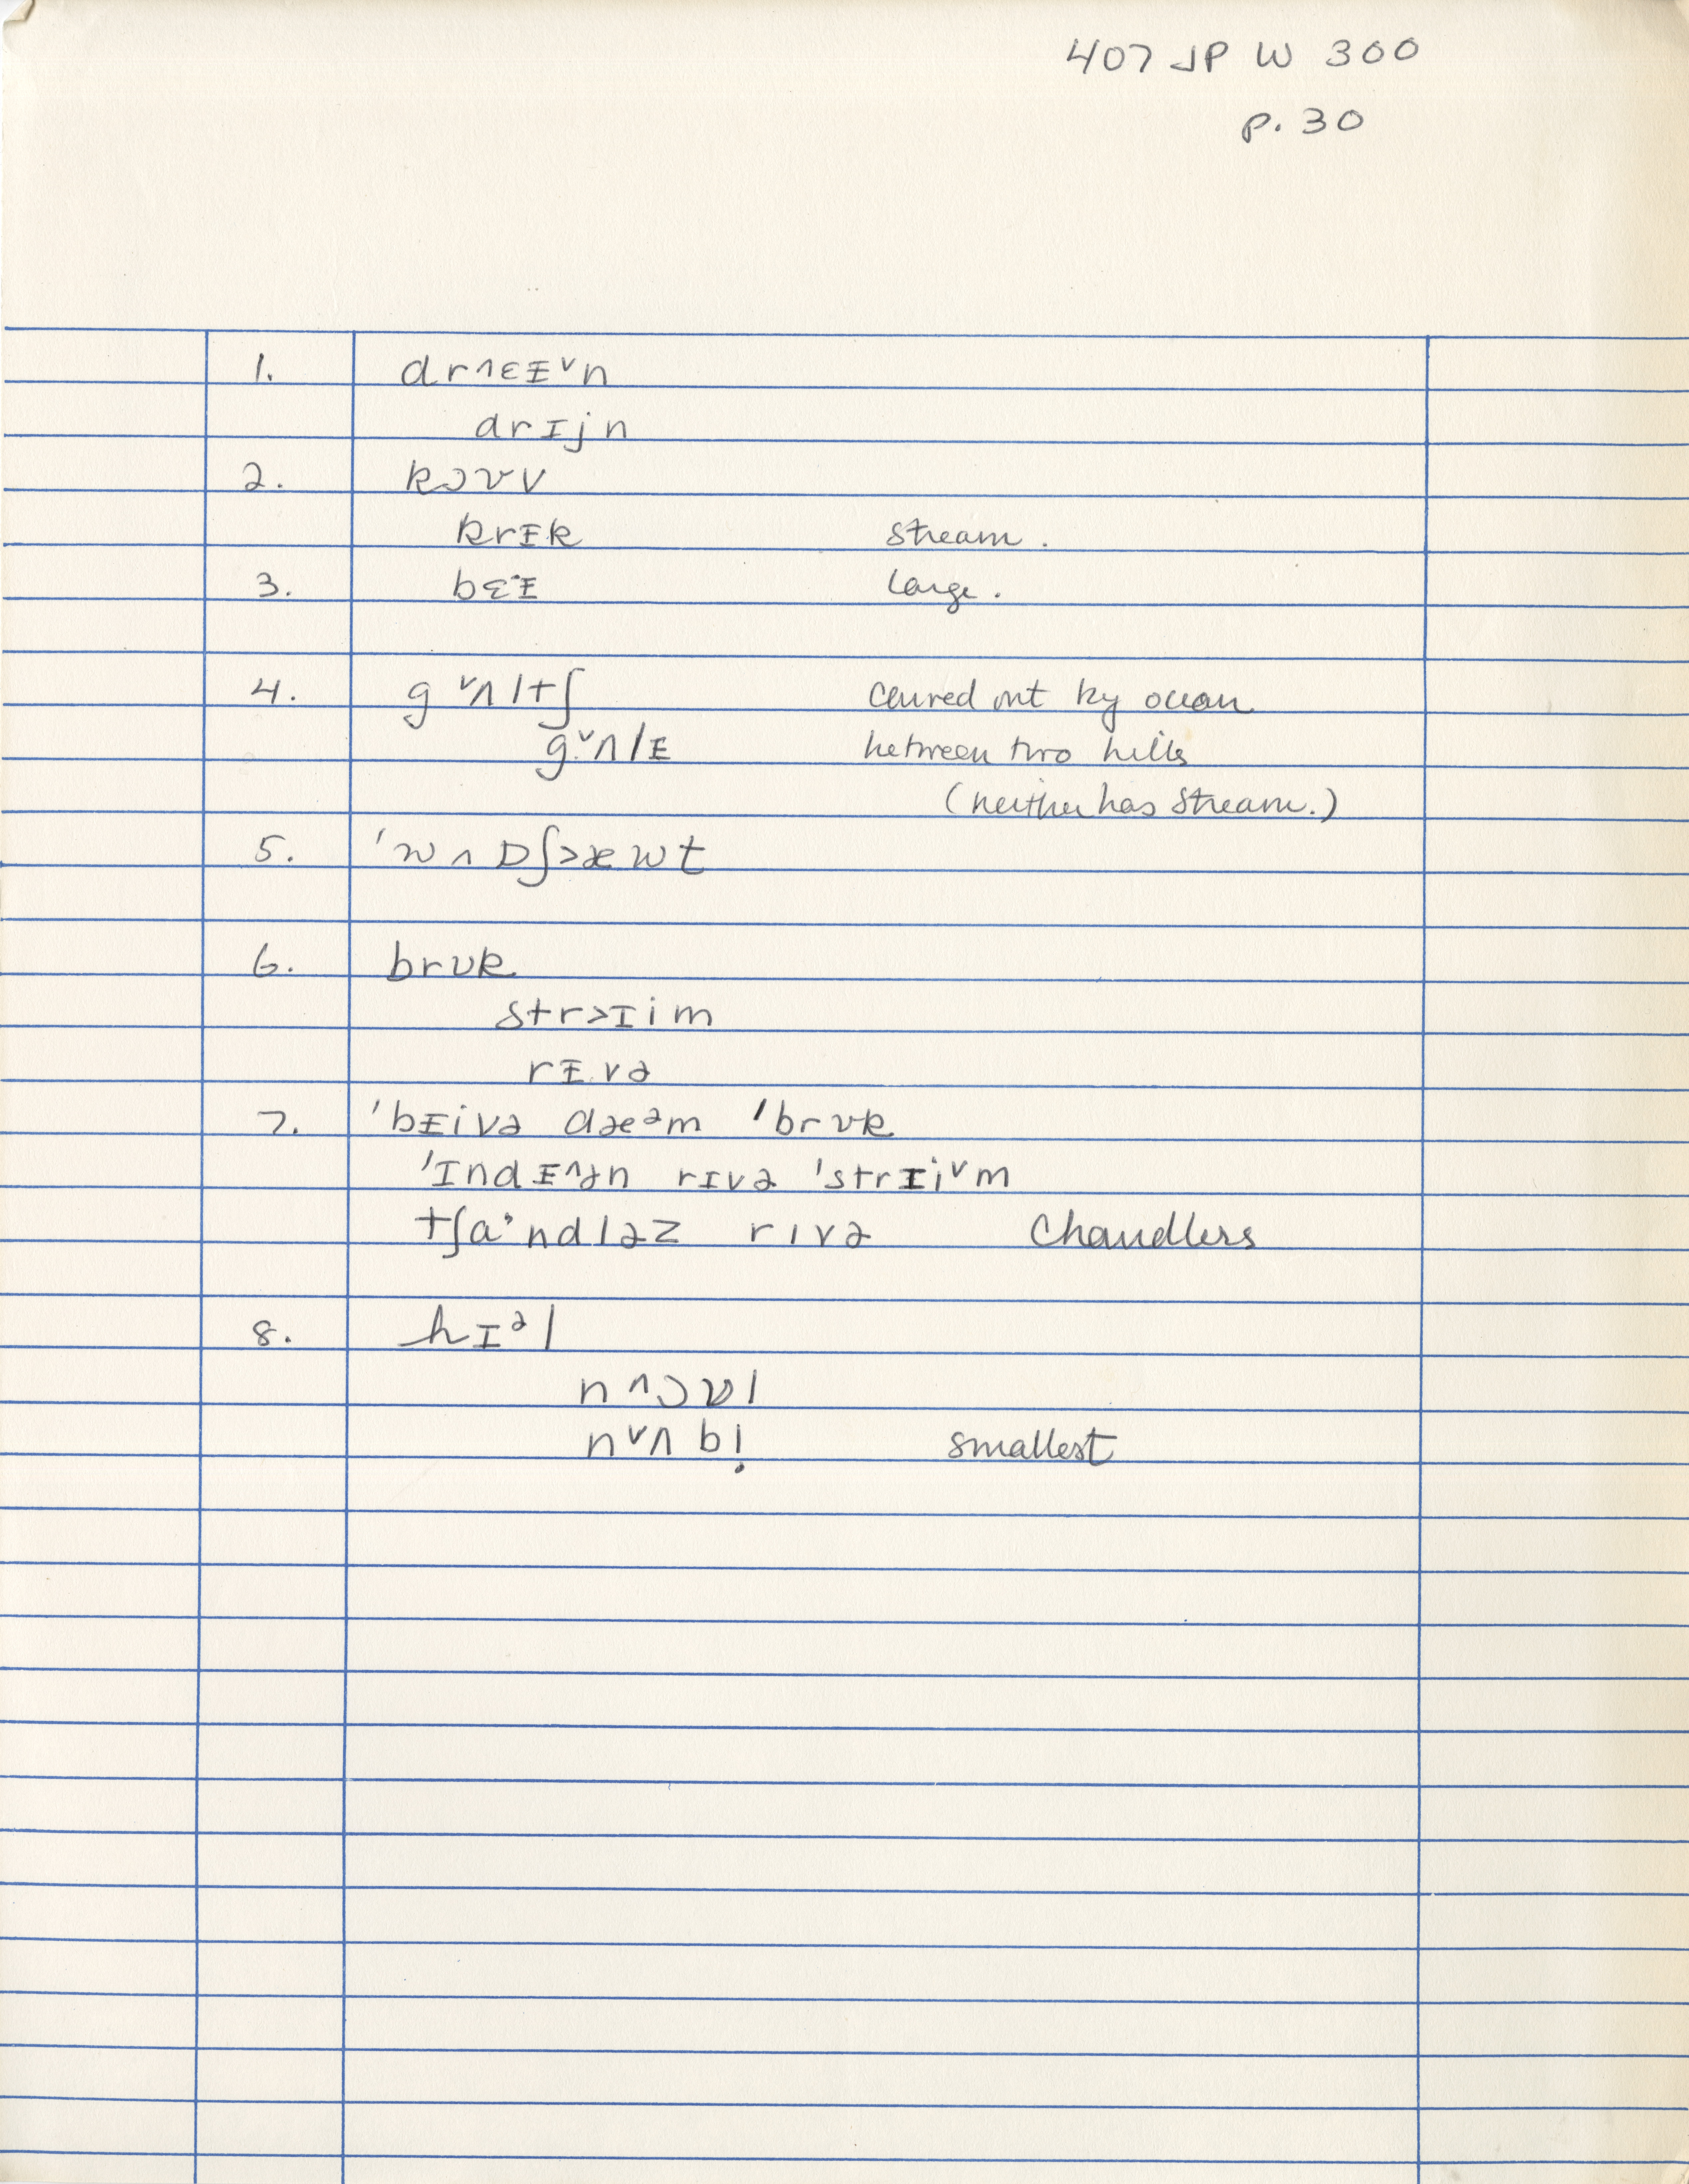 407 JP W 300
p. 30
1. drʌɛɪ̵ᵛn
drɪjn
2. kɔʊv
krɪ̵k stream.
3. bɛ·ɪ̵ large.
4. g ᵛʌltʃ carved out by ocean
gᵛʌlɪ̵ between two hills
(neither has stream.)
5. 'w ʌ ɒʃ>æwt
6. brʊk
str>ɪim
rɪ̵və
7. 'bɪ̵ivə dæᵊm 'brʊk
'ɪndɪ̵^ən rɪvə 'strɪiᵛm
tʃa·ndləz rɪvə Chandlers
8. hɪᵊl
n^ɔʊl
nᵛʌbl̩ smallest